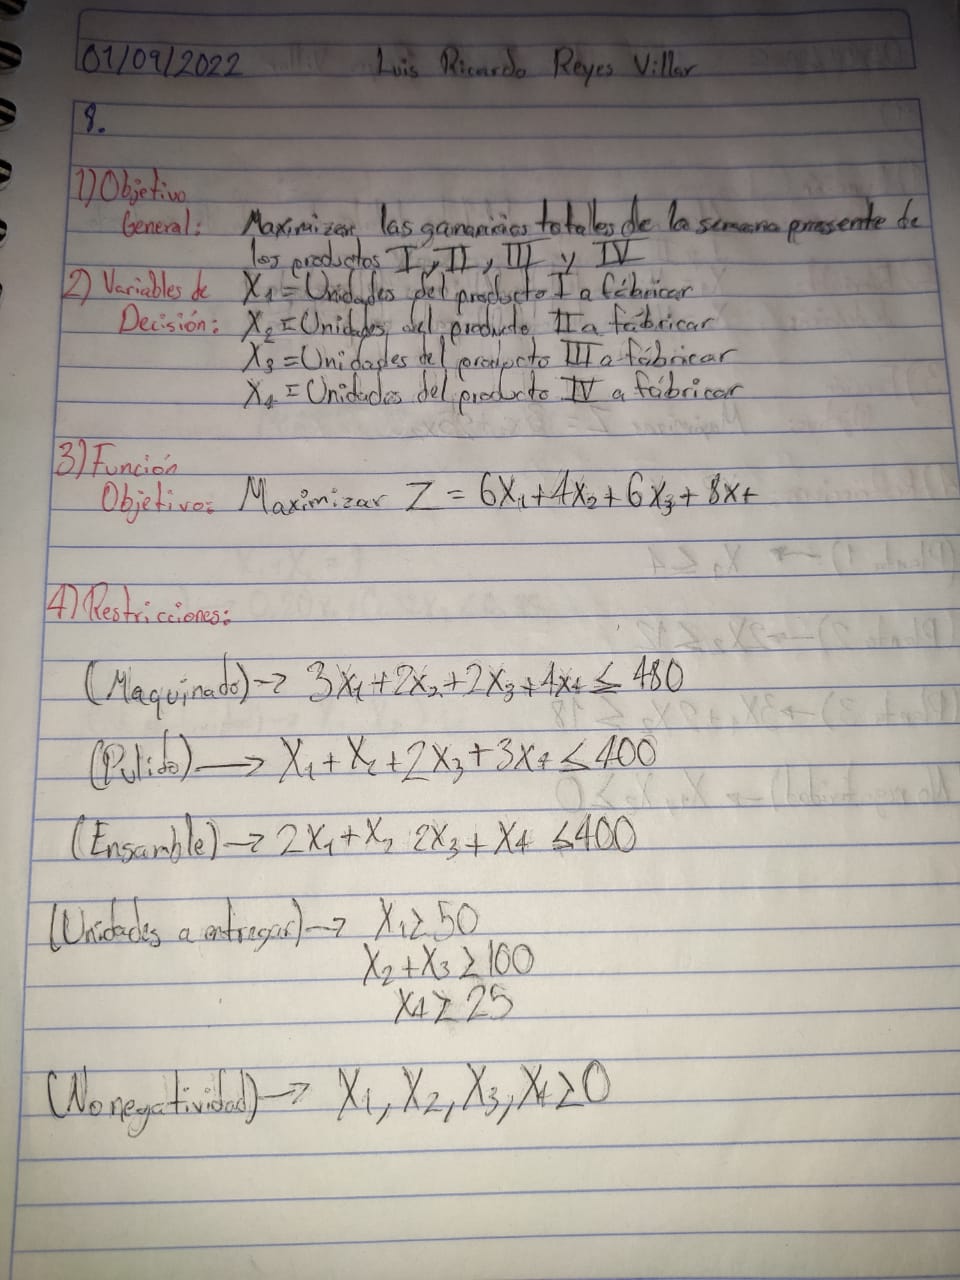 01/09/2022 Luis Ricardo Reyes Villar
8.
1) Objetivo
General: Maximizar las ganancias totales de la semana presente de
los productos I, II, III y IV
2) Variables de X1 = Unidades del producto I a fábricar
Decisión: X2 = Unidades del producto II a fábricar
X3 = Unidades del producto III a fábricar
X4 = Unidades del producto IV a fábricar
3) Función
Objetivo: Maximizar Z = 6X1 + 4X2 + 6X3 + 8X4
4) Restricciones:
(Maquinado) → 3X1 + 2X2 + 2X3 + 4X4 ≤ 480
(Pulido) → X1 + X2 + 2X3 + 3X4 ≤ 400
(Ensamble) → 2X1 + X2 2X3 + X4 ≤ 400
(Unidades a entregar) → X1 ≥ 50
X2 + X3 ≥ 100
X4 ≥ 25
(No negatividad) → X1, X2, X3, X4 ≥ 0